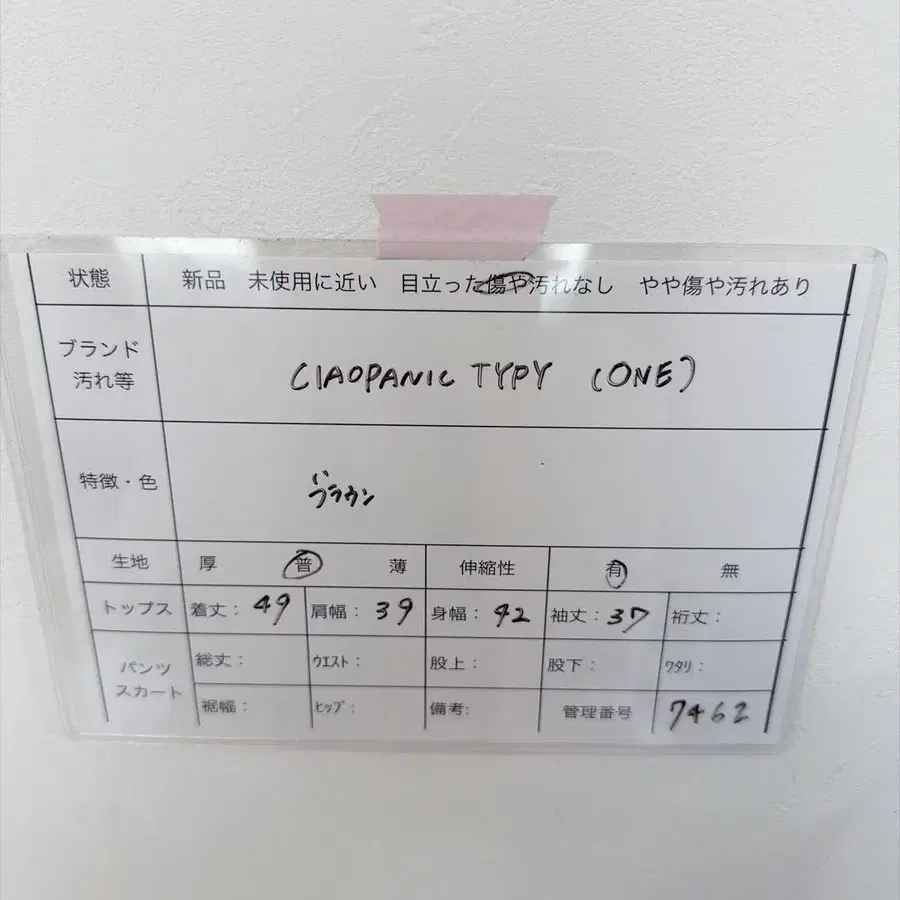 状態 新品 未使用に近い 目立った傷や汚れなし やや傷や汚れあり
ブランド
汚れ等
CIAOPANIC TYPY (ONE)
特徴・色 ブラウン
生地 厚 普 薄 伸縮性 有 無
トップス 着丈: 49 肩幅: 39 身幅: 42 袖丈: 37 裄丈:
パンツ
スカート
総丈: ウエスト: 股上: 股下: ワタリ:
裾幅: ヒップ: 備考: 管理番号 7462